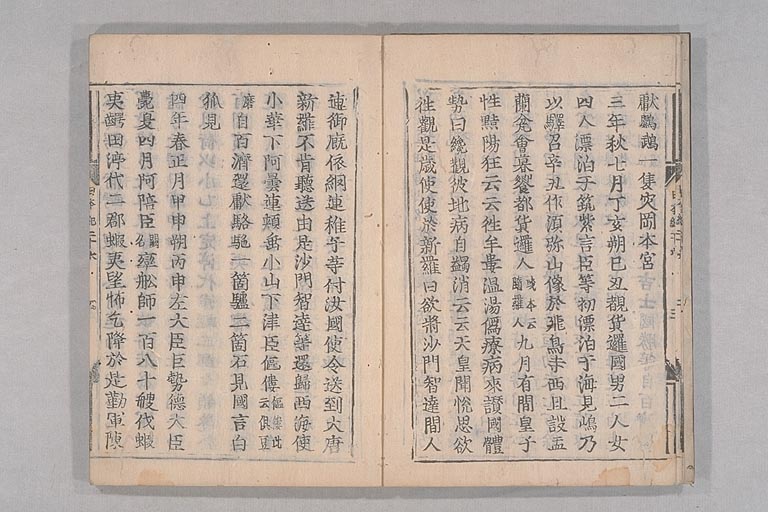 獻鸚鵡一隻灾岡本宮
三年秋七月丁亥朔己丑覩貨邏國男二人女
四人漂泊于筑紫言臣等初漂泊于海見嶋乃
以驛召辛丑作須弥山像於飛鳥寺西且設盂
蘭瓮會暮饗都貨邏人 或本云墮羅人 九月有間皇子
性黠陽狂云云往牟婁温湯偽療病來讃國體
勢曰纔觀彼地病自蠲消云云天皇聞悦思欲
往觀是歳使使於新羅曰欲將沙門智達間人
連御廐依網連稚子等付汝國使令送到大唐
新羅不肯聽送由是沙門智達等還歸西海使
小華下阿曇連頰垂小山下津臣傴僂 傴僂此云俱豆磨
自百濟還獻駱駝一箇驢二箇石見國言白
狐見
四年春正月甲申朔丙申左大臣巨勢德大臣
薨夏四月阿陪臣 闕名 率舩師一百八十艘伐蝦
夷齶田渟代二郡蝦夷望怖乞降於是勒軍陳